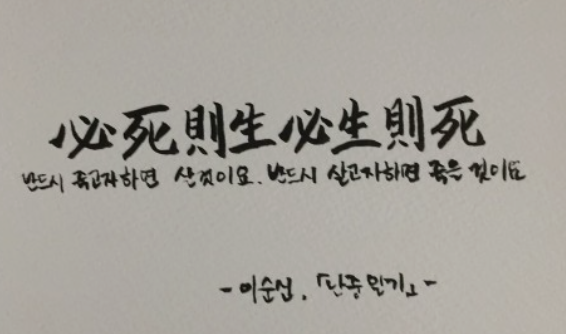 必死則生必生則死
반드시 죽고자하면 산것이요. 반드시 살고자하면 죽은 것이요
- 이순신, 「난중일기」-